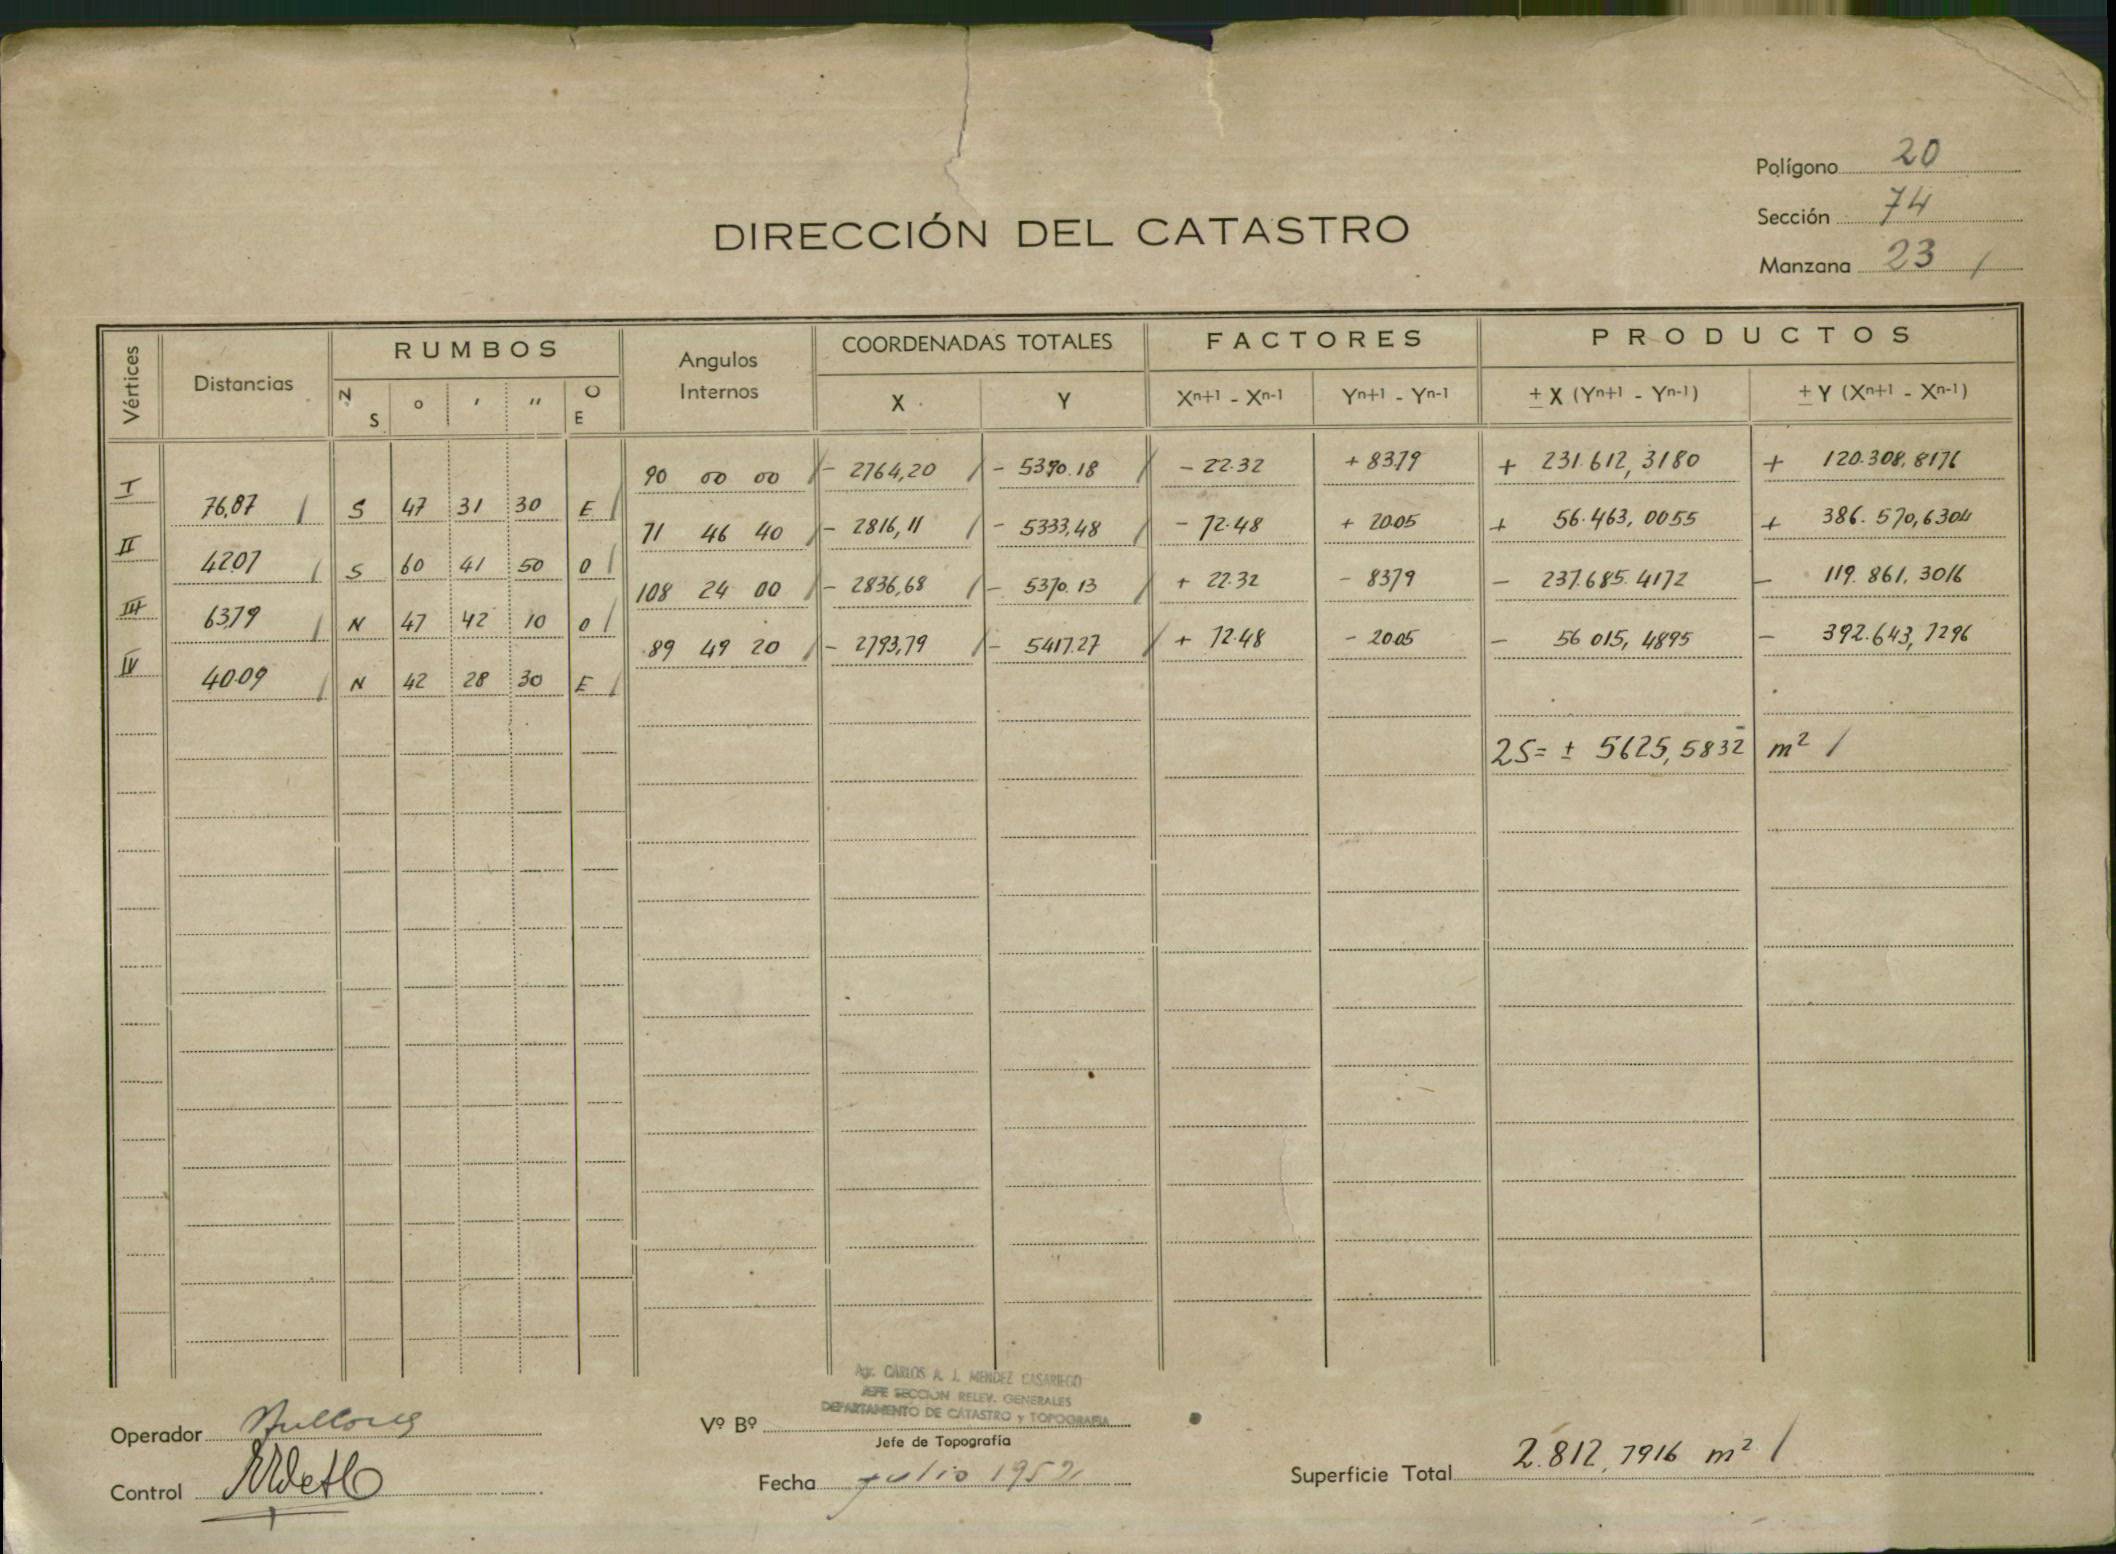 Polígono 20
Sección 74
Manzana 23 /
DIRECCIÓN DEL CATASTRO
Vértices Distancias RUMBOS Angulos Internos COORDENADAS TOTALES FACTORES PRODUCTOS
N S ° ' " O E X Y Xn+1 - Xn-1 Yn+1 - Yn-1 ± X (Yn+1 - Yn-1) ± Y (Xn+1 - Xn-1)
90 00 00 / - 2764,20 / - 5390.18 / - 22.32 + 8379 + 231.612,3180 + 120.308,8176
I 76,87 / S 47 31 30 E /
71 46 40 / - 2816,11 / - 5333,48 / - 72.48 + 2005 + 56.463,0055 + 386.570,6304
II 4207 / S 60 41 50 O /
108 24 00 / - 2836,68 / - 5370.13 / + 22.32 - 8379 - 237.685.4172 - 119.861.3016
III 6379 / N 47 42 10 O /
89 49 20 / - 2793,79 / - 5417.27 / + 72.48 - 2005 - 56 015,4895 - 392.643,7296
IV 4009 / N 42 28 30 E /
2S= ± 5625,5832 m² /
Agr. CARLOS A. J. MENDEZ CASARIEGO
JEFE SECCION RELEV. GENERALES
DEPARTAMENTO DE CATASTRO y TOPOGRAFIA
Operador
Vº Bº
Jefe de Topografía
Control
Fecha julio 1952
Superficie Total 2.812,7916 m² /